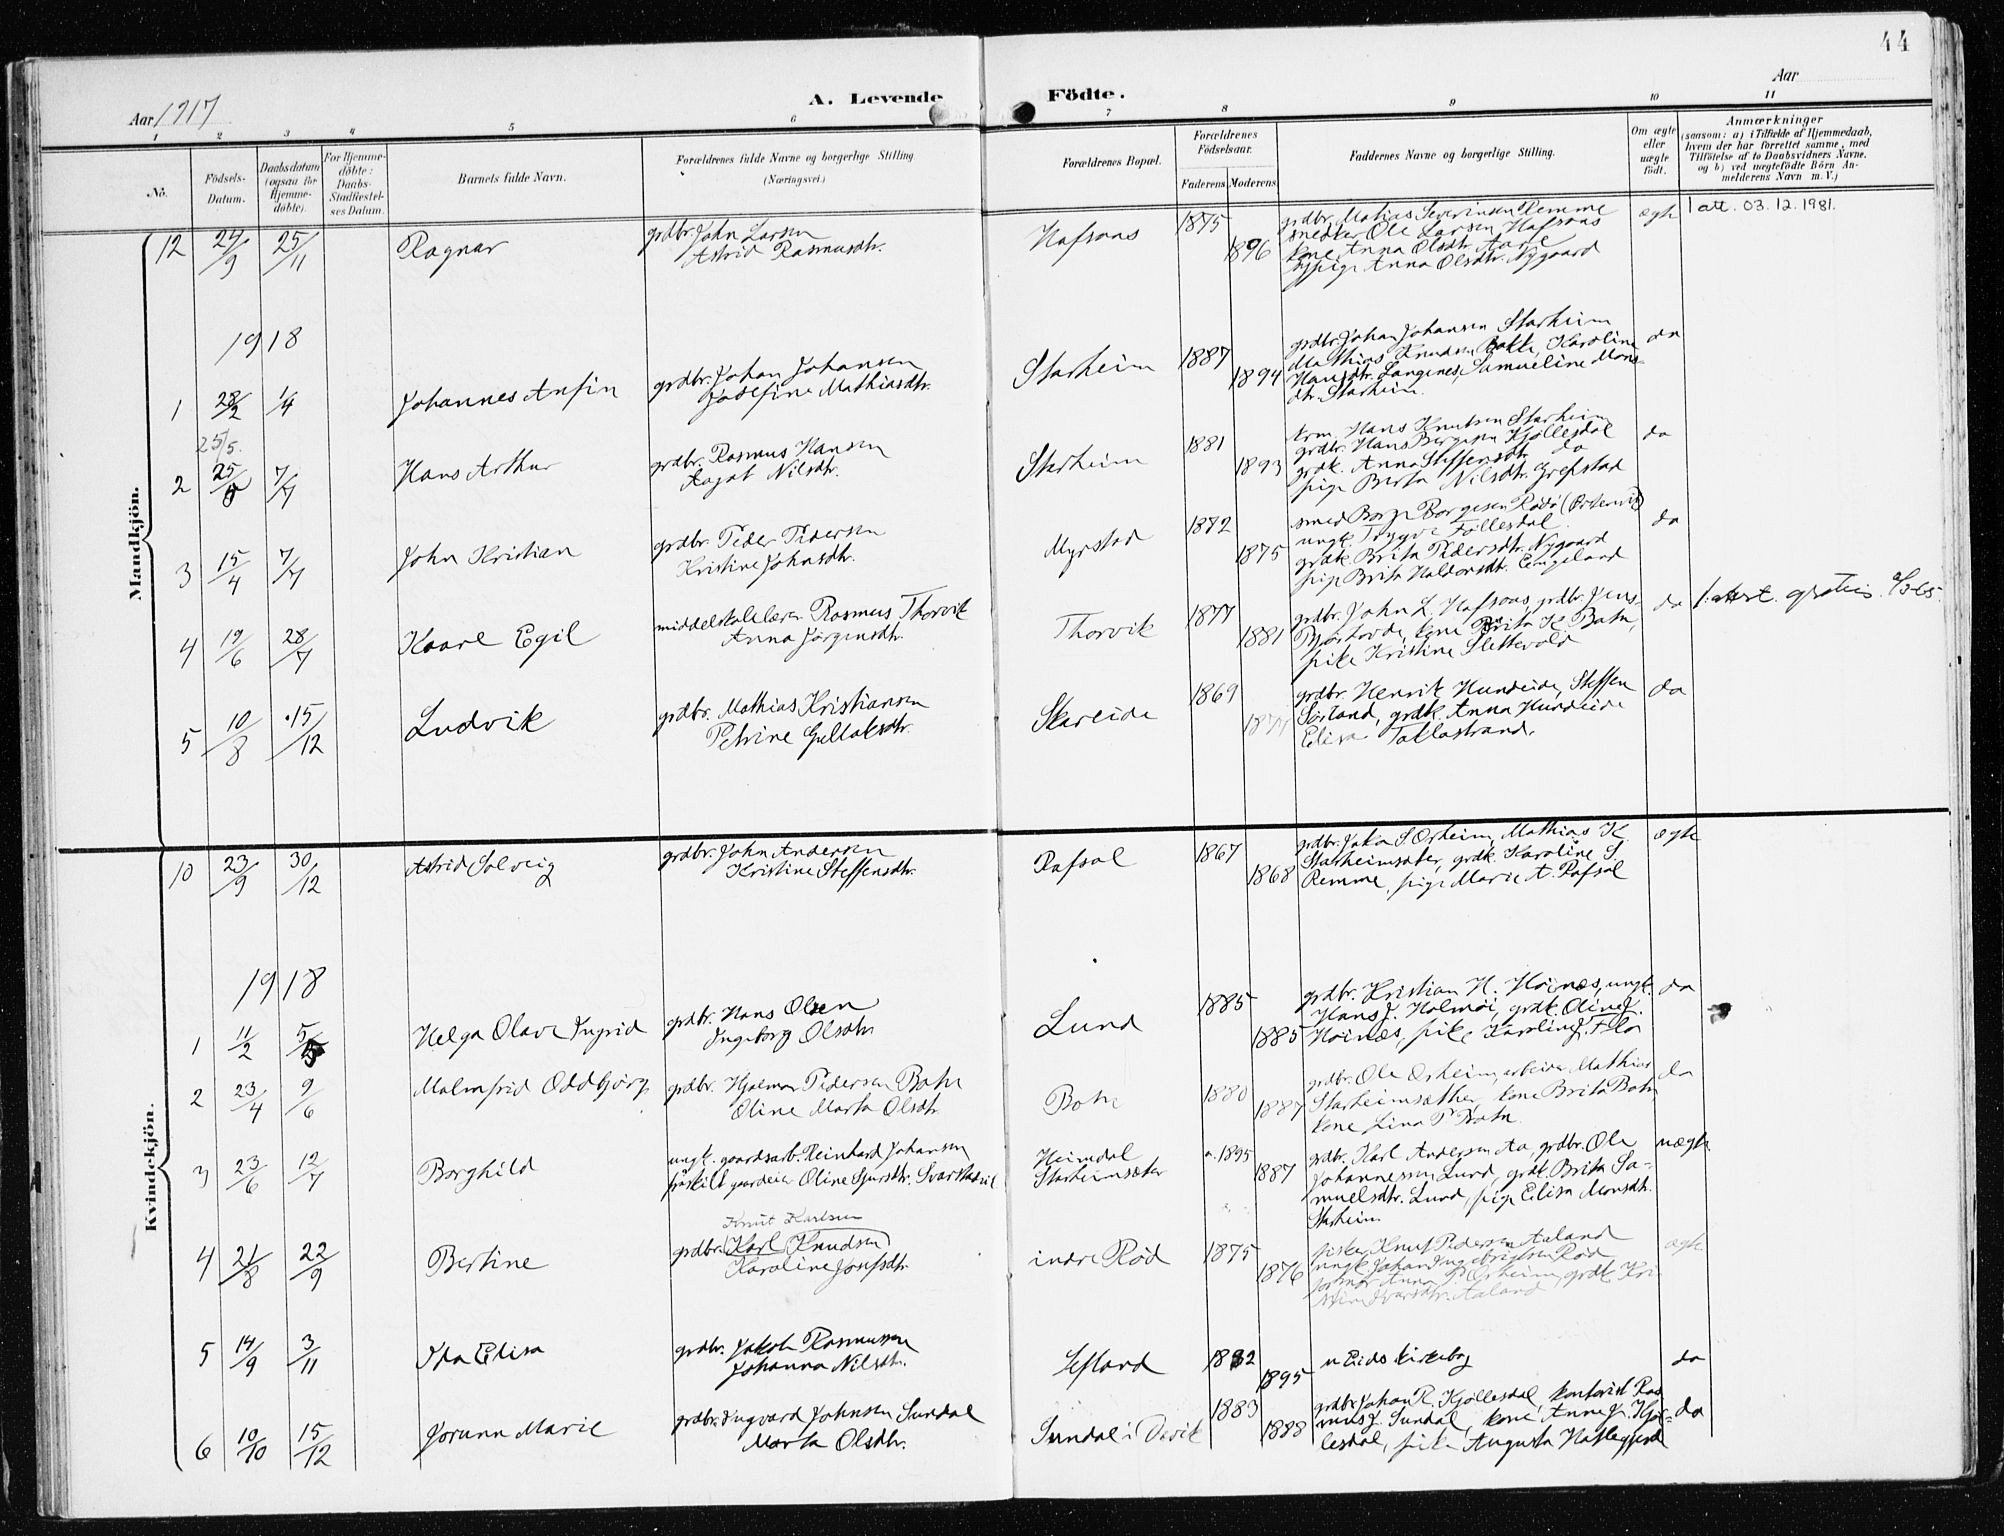 44
Aar 1917
A. Levende Födte.
Aar
1 2 3 4 5 6 7 8 9 10 11
No.
Födsels-Datum.
Daabsdatum (ogsaa for Hjemme-döbte).
For Hjemme-döbte: Daabs-Stadfæstel-ses Datum.
Barnets fulde Navn.
Forældrenes fulde Navne og borgerlige Stilling
(Næringsvei.)
Forældrenes Bopæl.
Forældrenes Födselsaar.
Faderens Moderens
Faddernes Navne og borgerlige Stilling.
Om ægte eller uægte födt.
Anmærkninger
(saasom: a) i Tilfælde af Hjemmedaab,
hvem der har forrettet samme, med
Tilföielse af to Daabsvidners Navne.
og b) ved uægtefödte Börn An-
melderens Navn m. V.)
Mandkjön.
12 24/9 25/11 Ragnar
grdbr. John Larsen
Astrid Rasmusdtr.
Hafsaas 1875 1896
grdbr. Mathias Severinsen Remme
snedker Ole Larsen Hafsaas
kone Anna Olsdtr. Aarle
pige Anna Olsdtr. Nygaard
ægte
1 att. 03.12.1981.
1918
1 28/2 1/4 Johannes Anfin
grdbr. Johan Johansen
Josefine Mathiasdtr.
Starheim 1887 1894
grdbr. Johan Johansen Starheim
Mathias Knudsen Bakke, Karoline
Hansdtr. Langenes, Samueline Mons-
dtr. Starheim.
da
25/5.
2 25/5 7/7 Hans Arthur
grdbr. Rasmus Hansen
Ragat Nilsdtr.
Starheim 1881 1893
krm. Hans Knutsen Starheim
grdbr. Hans Børgesen Kjøllesdal
grdk. Anna Steffensdtr. do
pige Berta Nilsdtr. Grefstad
da
3 15/4 7/7 John Kristian
grdbr. Peder Pedersen
Kristine Johnsdtr.
Myrstad 1872 1875
smed Børge Børgesen Rødø
ungk. Trygve Føllesdal
grdk. Brita Pedersdtr. Nygaard
pige Brita Haldorsdtr. Eengeland
da
4 19/6 28/7 Kaare Egil
middelskolelærer Rasmus Thorvik
Anna Jørgensdtr.
Thorvik 1877 1881
grdbr. John L. Hafsaas, grdbr. Jens
kone Brita K. Batn,
pike Kristine Slettevold
da
1 attest. gratis
5 10/8 15/12 Ludvik
grdbr. Mathias Kristiansen
Petrine Gullaksdtr.
Skareide 1869 1874
grdbr. Henrik Hundeide, Steffen
Sørland, grdk. Anna Hundeide
Elisa Taklastrand.
da
Kvindekjön.
10 23/9 30/12 Astrid Solveig
grdbr. John Andersen
Kristine Steffensdtr.
Rafsal 1867 1868
grdbr. Jakob S Ørheim, Mathias K.
Starheimsæter, grdk. Karoline S.
Remme, pige Marie A. Rafsal
ægte
1918
1 11/2 5/5 Helga Olave Ingrid
grdbr. Hans Olsen
Ingeborg Olsdtr.
Lund 1885 1885
grdbr. Kristian H. Høinæs, ungk.
Hans J. Holmøi, grdk. Oline J.
Høinæs, pike Karoline J. Flo
da
2 23/4 9/6 Malmfrid Oddbjørg
grdbr. Hjalmar Pedersen Botn
Oline Marta Olsdtr.
Botn 1880 1887
grdbr. Ole Ørheim, arbeider Mathias
Starheimsæther, kone Brita Botn
kone Lina P. Botn
da
3 23/6 12/7 Borghild
ungk. gaardsarb. Reinhard Johansen
fraskilt gaardeier Oline Sjursdtr. Svarstadvik
Heimdal
Starheimsæter
a. 1895 1887
grdbr. Karl Andersen Aa, grdbr. Ole
Johannessen Lund, grdk. Brita Sa-
muelsdtr. Lund, pige Elisa Monsdtr.
Starheim
uægte
Knut Karlsen
4 21/8 22/9 Bertine
grdbr. (Karl Knudsen)
Karoline Josefsdtr.
indre Rød 1875 1876
fisker Knut Pedersen Aaland
ungk. Johan Ingebrigtsen Rød
jormor Anna P. Ørheim, grdk. Kri-
stine Ivarsdtr. Aaland
ægte
5 14/9 3/11 Ida Elisa
grdbr. Jakob Rasmussen
Johanna Nilsdtr.
Lefland 1882 1895
n Eids kirkebog
da
6 10/10 15/12 Jorunn Marie
grdbr. Ingvard Johnsen Sundal
Marta Olsdtr.
Sundal i Davik 1883 1888
grdbr. Johan R. Kjøllesdal, kontorist Ras
mus J. Sundal, kone Anne J. Kjøl-
lesdal, pike Augusta Hatlegjerde
da